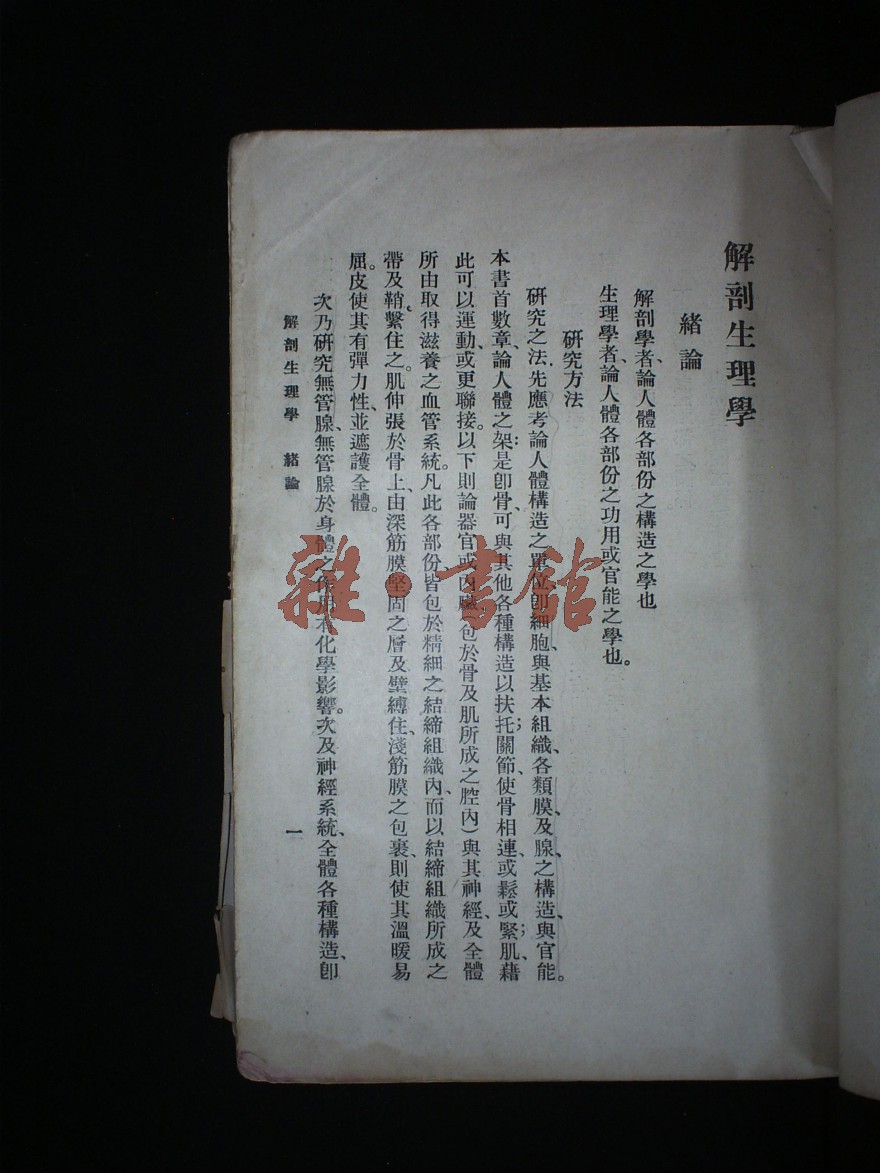 解剖生理學
緒論
解剖學者、論人體各部份之構造之學也
生理學者、論人體各部份之功用或官能之學也。
研究方法
研究之法、先應考論人體構造之單位、卽細胞、與基本組織、各類膜、及腺、之構造、與官能。
本書首數章、論人體之架、是卽骨、可與其他各種構造以扶托；關節、使骨相連、或鬆或緊；肌、藉
此可以運動、或更聯接。以下則論器官或內臟（包於骨及肌所成之腔內）與其神經、及全體
所由取得滋養之血管系統。凡此各部份、皆包於精細之結締組織內、而以結締組織所成之
帶及鞘、繫住之。肌伸張於骨上、由深筋膜堅固之層及壁縛住、淺筋膜之包裹、則使其溫暖易
屈。皮使其有彈力性、並遮護全體。
次乃研究無管腺、無管腺於身體之化學影響。次及神經系統、全體各種構造、卽
解剖生理學 緒論
一
雜·書館